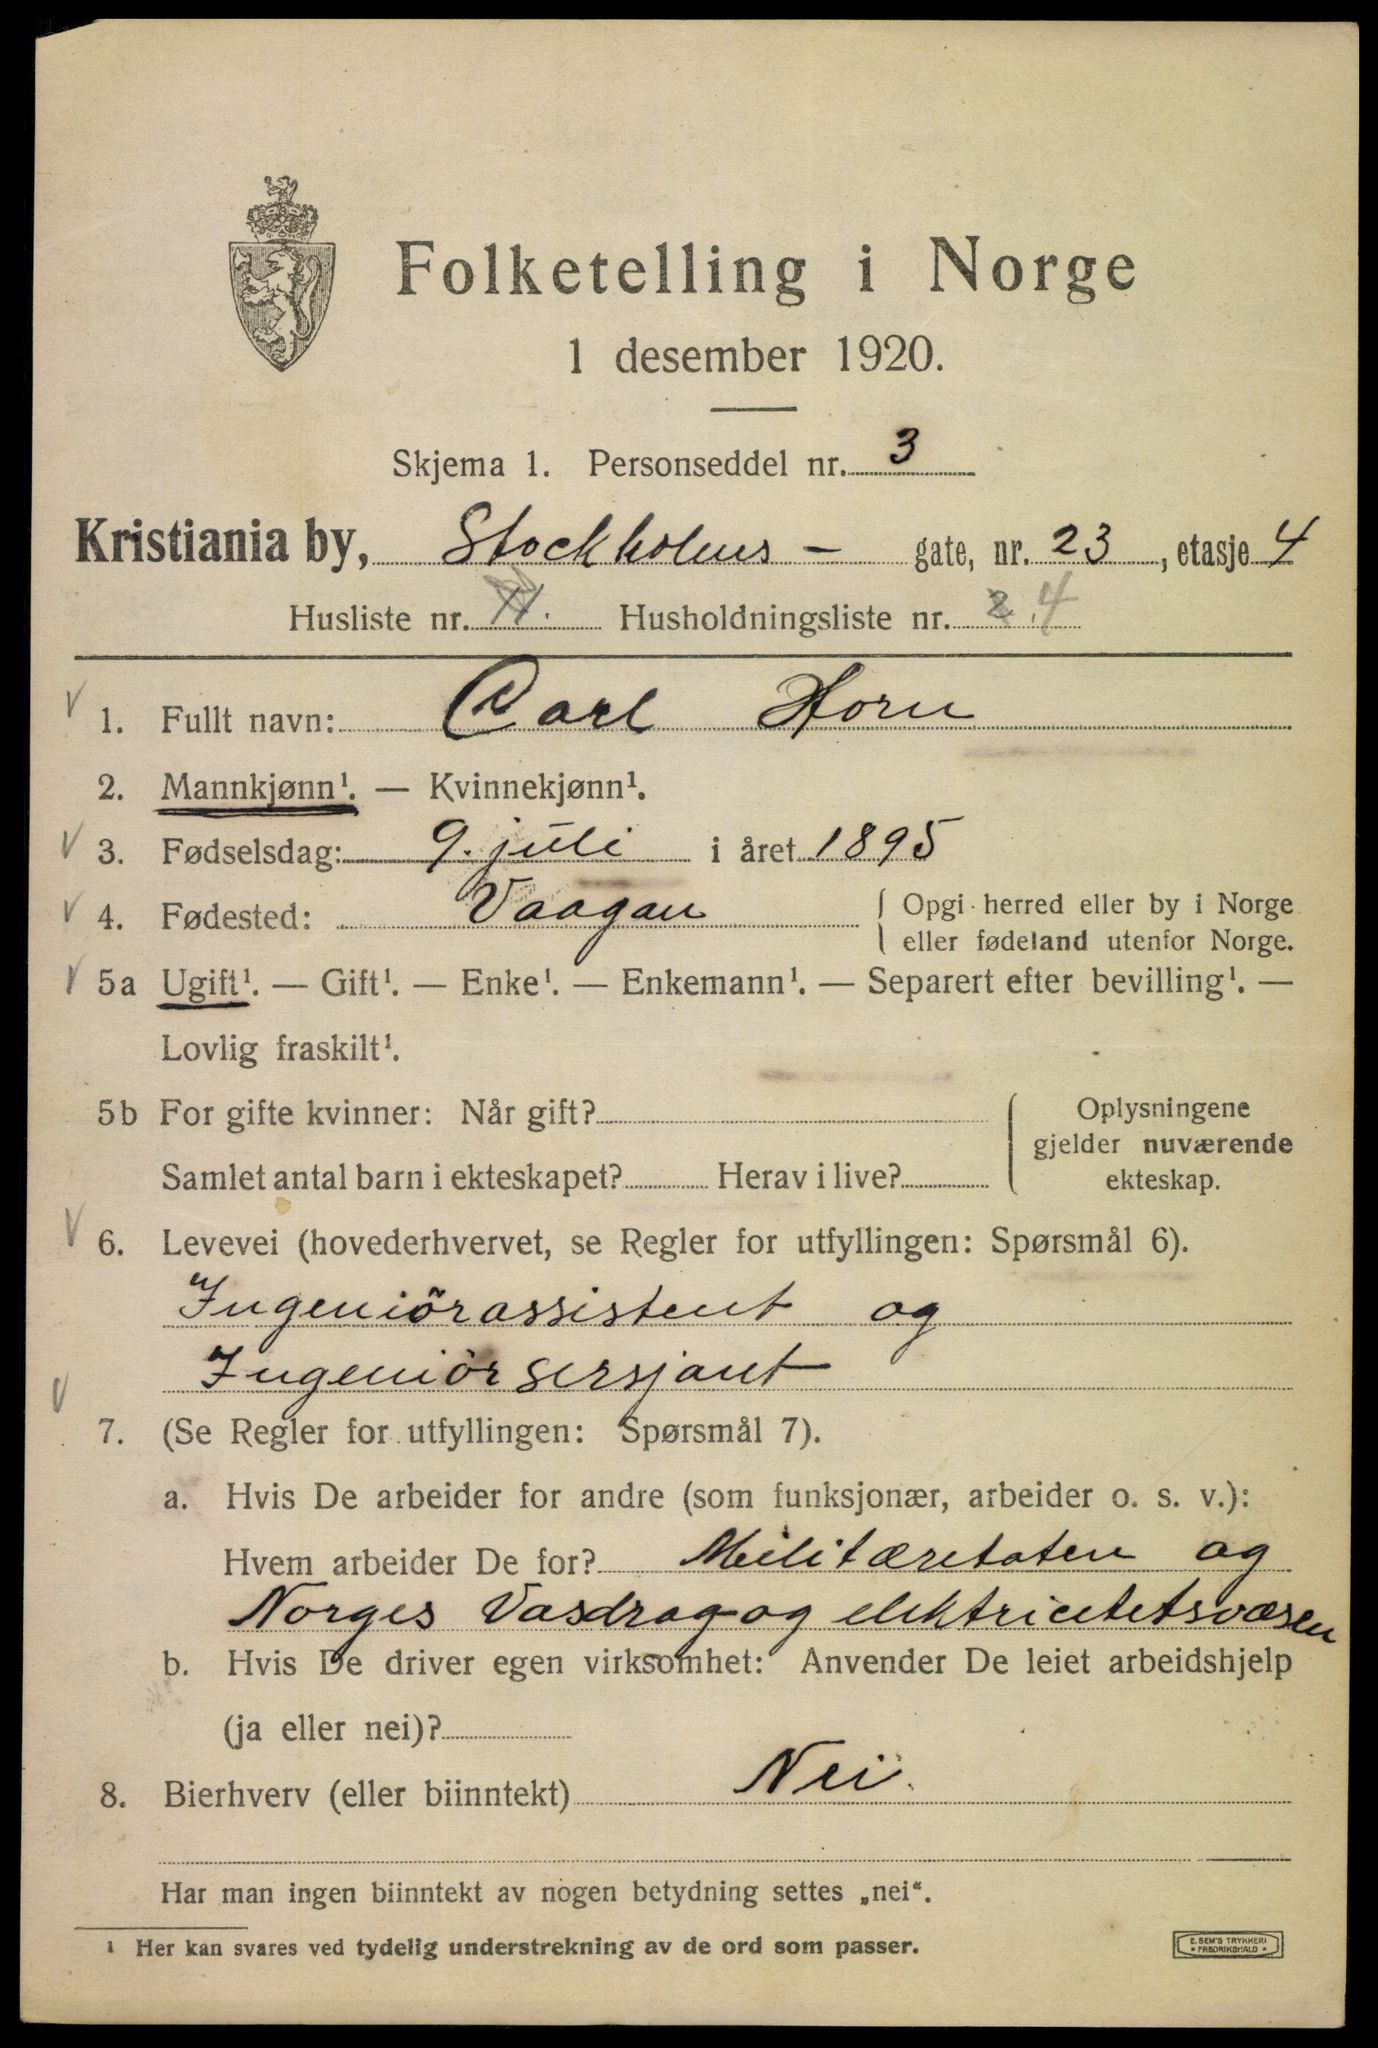 Folketelling i Norge
1 desember 1920.
Skjema 1. Personseddel nr. 3
Kristiania by, Stockholms - gate, nr. 23, etasje 4
Husliste nr. 11. Husholdningsliste nr. 2. 4
1. Fullt navn: Carl Horn
2. Mannkjønn¹. — Kvinnekjønn¹.
3. Fødselsdag: 9. juli i året 1895
4. Fødested: Vaagan { Opgi herred eller by i Norge
eller fødeland utenfor Norge.
5a Ugift¹. — Gift¹. — Enke¹. — Enkemann¹. — Separert efter bevilling¹. —
Lovlig fraskilt¹.
5b For gifte kvinner: Når gift?
Samlet antal barn i ekteskapet? Herav i live?
Oplysningene
gjelder nuværende
ekteskap.
6. Levevei (hovederhvervet, se Regler for utfyllingen: Spørsmål 6).
Ingeniörassistent og
Ingeniörsersjant
7. (Se Regler for utfyllingen: Spørsmål 7).
a. Hvis De arbeider for andre (som funksjonær, arbeider o. s. v.):
Hvem arbeider De for? Militæretaten og
Norges Vasdrag-og elektricitetsvæsen
b. Hvis De driver egen virksomhet: Anvender De leiet arbeidshjelp
(ja eller nei)?
8. Bierhverv (eller biinntekt) Nei.
Har man ingen biinntekt av nogen betydning settes „nei“.
¹ Her kan svares ved tydelig understrekning av de ord som passer.
E. SEM'S TRYKKERI
• FREDRIKSHALD •